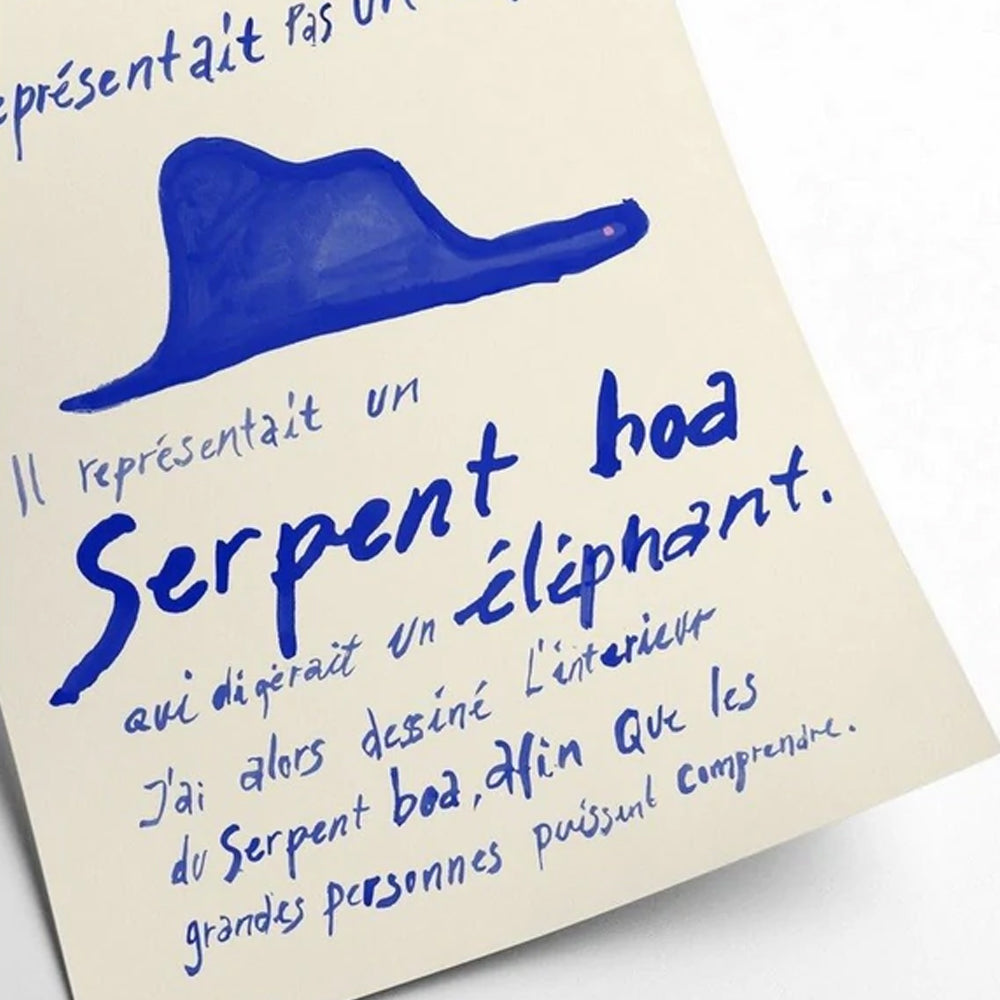 représentait pas un
Il représentait un
Serpent boa
qui digérait un éléphant.
J'ai alors dessiné l'interieur
du Serpent boa, afin Que les
grandes personnes puissent comprendre.